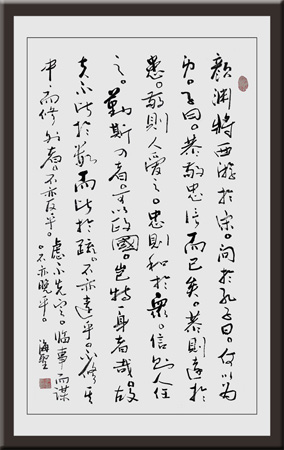 顏淵將西游於宋。問於孔子曰。何以為
身。子曰。恭敬忠信而已矣。恭則遠於
患。敬則人愛之。忠則和於衆。信則人任
之。勤斯四者。可以政國。豈特一身者哉。故
夫不比於數而比於疏。不亦遠乎。不修其
中。而修外者。不亦反乎。
慮不先定。臨事而謀
。不亦晚乎。